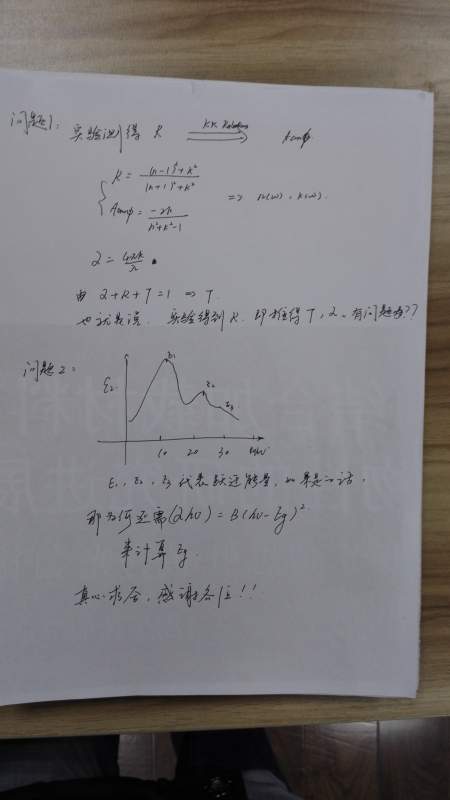 问题1: 实验测得 R  KK Relations ⟹  A tanφ
R = (n-1)²+K² / (n+1)²+K²
A tanφ = -2K / n²+K²-1  ⇒ n(ω), K(ω).
α = 4πK/λ.
由 α+R+T=1 ⇒ T.
也就是说, 实验得到R, 即推得T, α. 有问题吗??
问题2:
ε₂
E₁
E₂
E₃
10 20 30 hν/eV
E₁, E₂, E₃ 代表跃迁能量, 如果是的话,
那为何还需(αhν) = B(hν-Eg)²
来计算 Eg.
真心求答, 感谢各位!!